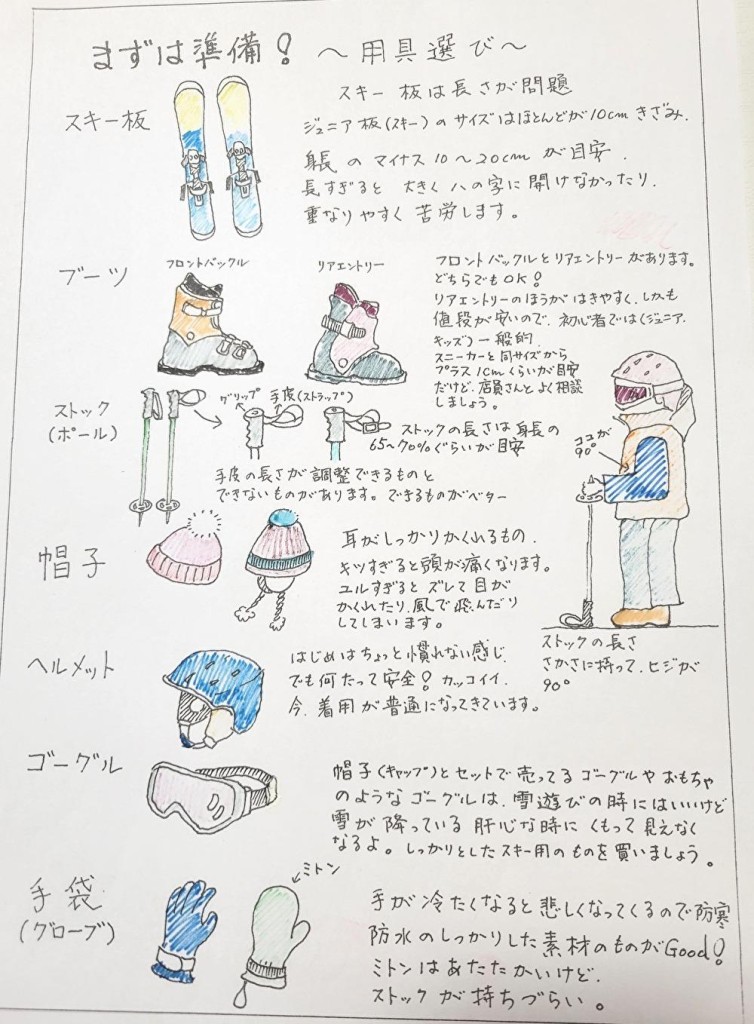 まずは準備! 〜用具選び〜
スキー板
スキー板は長さが問題
ジュニア板(スキー)のサイズはほとんどが10cmきざみ.
身長のマイナス10〜20cmが目安.
長すぎると 大きくハの字に開けなかったり.
重なりやすく苦労します。
ブーツ
フロントバックル
リアエントリー
フロントバックルとリアエントリーがあります。
どちらでもOK!
リアエントリーのほうがはきやすく.しかも
値段が安いので.初心者では(ジュニア.
キッズ)一般的.
スニーカーと同サイズから
プラス1cmくらいが目安
だけど.店員さんとよく相談
しましょう。
ストック
(ポール)
グリップ
手皮(ストラップ)
ストックの長さは身長の
65〜70%ぐらいが目安
手皮の長さが調整できるものと
できないものがあります。できるものがベター
ココが
90°
ストックの長さ
さかさに持って.ヒジが
90°
帽子
耳がしっかりかくれるもの.
キツすぎると頭が痛くなります。
ユルすぎるとズレて目が
かくれたり.風で飛んだり
してしまいます。
ヘルメット
はじめはちょっと慣れない感じ.
でも何たって安全!カッコイイ.
今.着用が普通になってきています。
ゴーグル
帽子(キャップ)とセットで売ってるゴーグルやおもちゃ
のようなゴーグルは.雪遊びの時にはいいけど
雪が降っている肝心な時にくもって見えなく
なるよ。しっかりとしたスキー用のものを買いましょう。
手袋
(グローブ)
ミトン
手が冷たくなると悲しくなってくるので防寒
防水のしっかりした素材のものがGood!
ミトンはあたたかいけど.
ストックが持ちづらい。